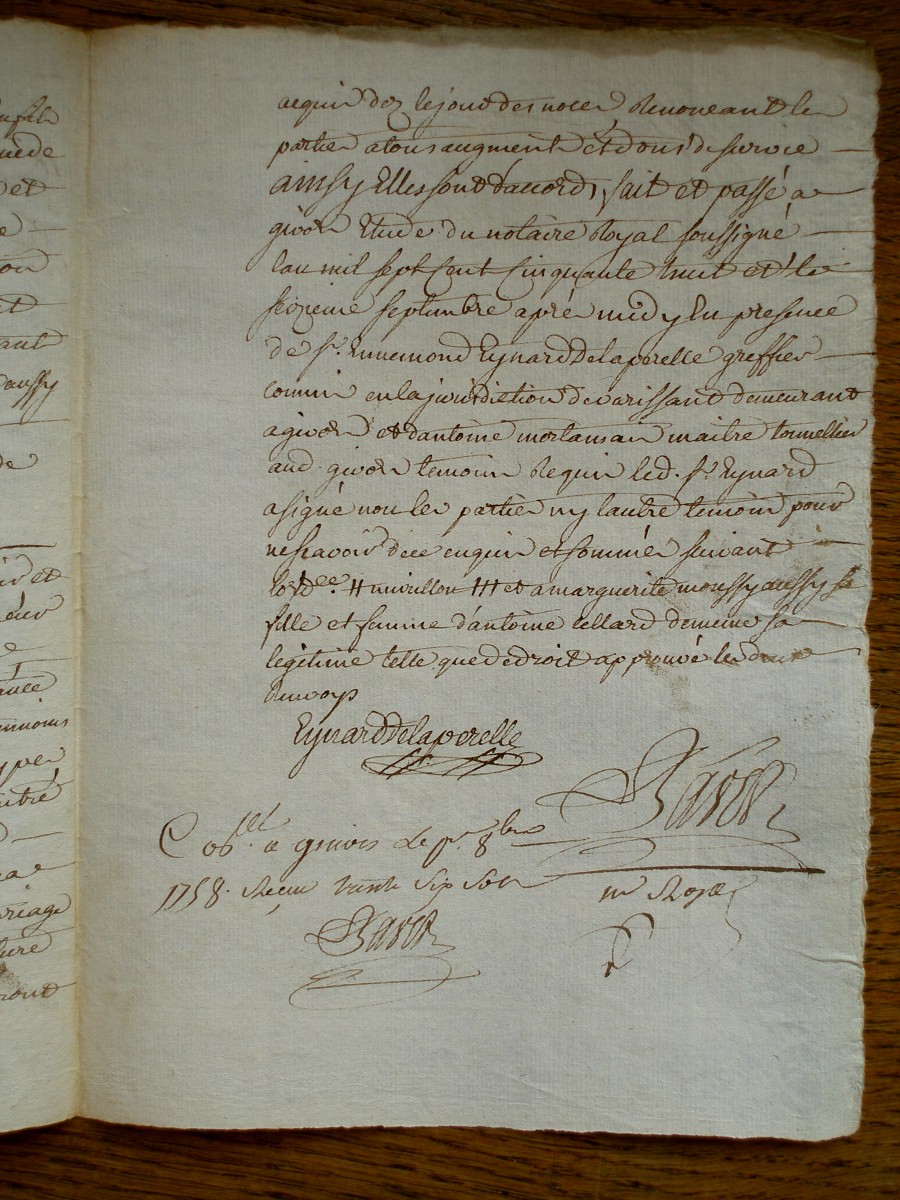 acquis dez le jour des noces Renonceant les
parties a tous augments et dons de survie
ainsy Elles sont d'accord, fait et passé a
givors Etude du notaire Royal soussigné
l'an mil sept cent cinquante huit et le
seizieme septembre après midy En presence
de sr. Ennemond Eynard Delaperelle greffier
commis en la jurisdiction de varissant demeurant
a givors et d'antoine mortamsan maitre tonnellier
aud. givors temoins Requis led. sr. Eynard
a signé non les parties ny l'autre temoin pour
ne scavoir de ce enquis et sommés suivant
lord.ce # # et a marguerite moussy aussy sa
fille et femme d'antoine cellard de meme sa
legitime telle que de droit approuvé les deux
Renvoys
Eynard Delaperelle
Baver
Con.lé a givors le pr. 8bre
1758. Reçu trente six sols
nre Royal
Baver
ufils
et
e
on
et
ant
aussy
de
et
e
ée
per
é
riage